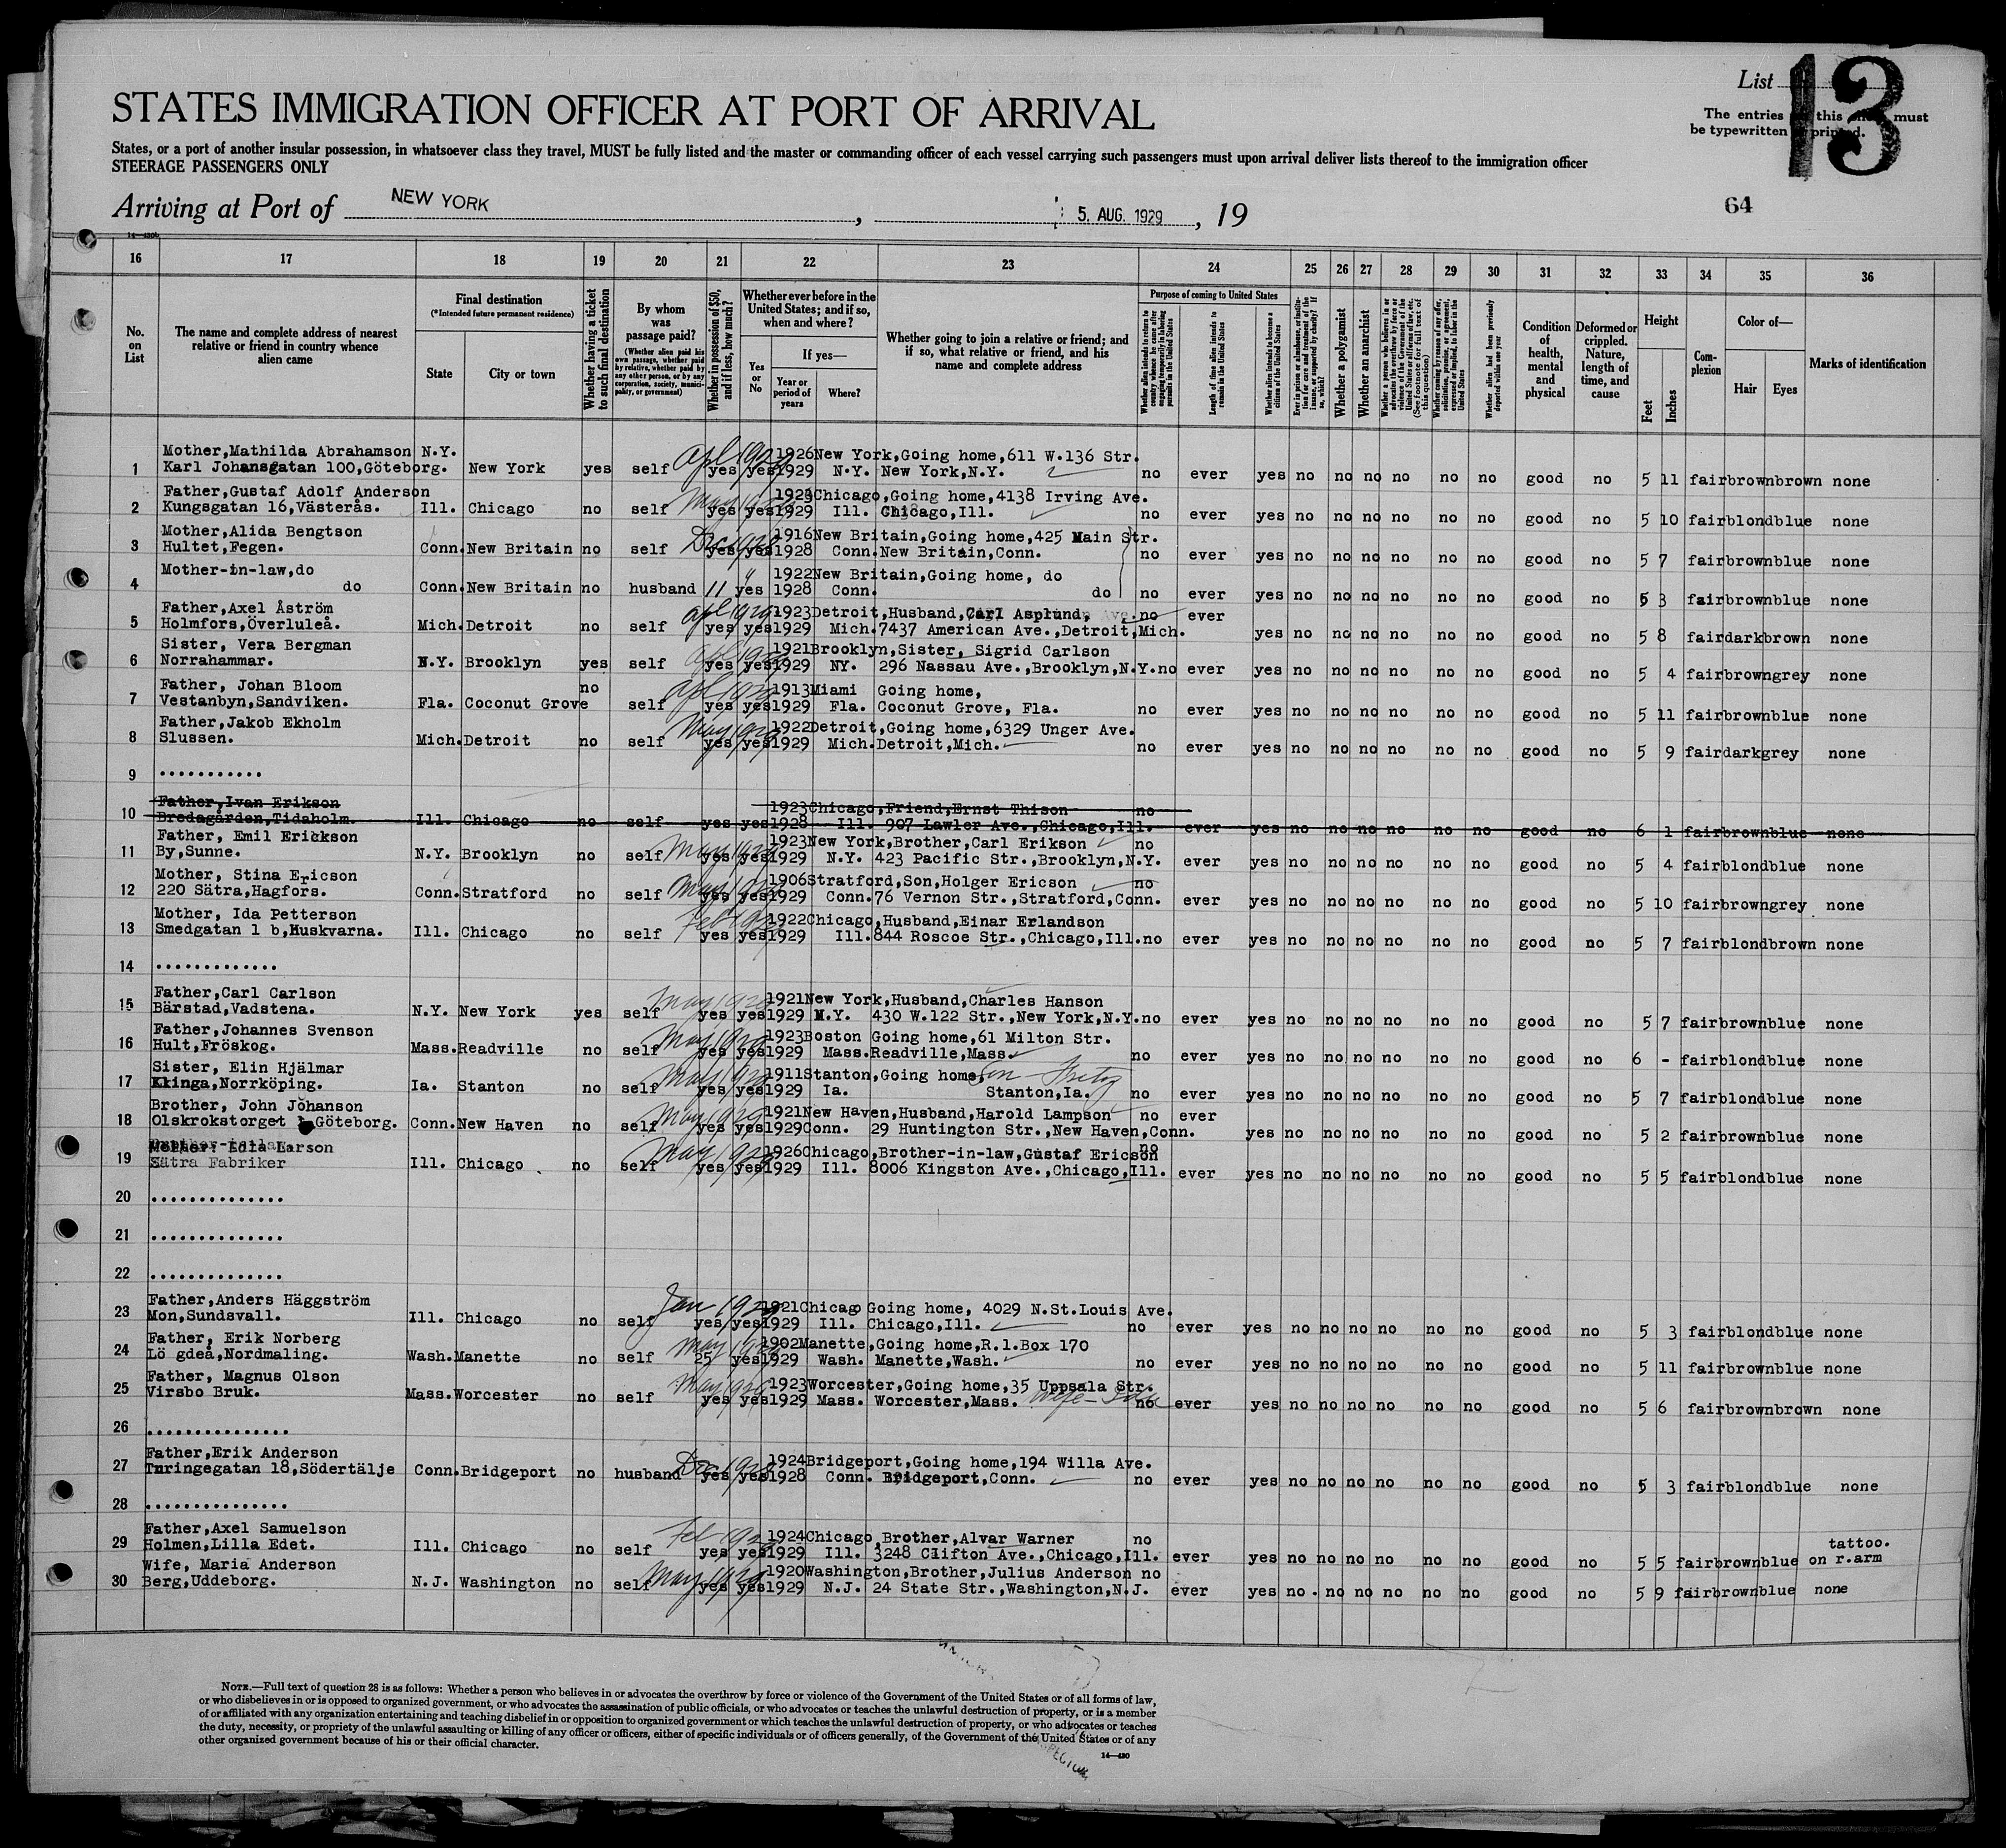 List 13
STATES IMMIGRATION OFFICER AT PORT OF ARRIVAL
The entries this must
be typewritten printed.
States, or a port of another insular possession, in whatsoever class they travel, MUST be fully listed and the master or commanding officer of each vessel carrying such passengers must upon arrival deliver lists thereof to the immigration officer
STEERAGE PASSENGERS ONLY
Arriving at Port of NEW YORK , 5. AUG. 1929 , 19
64
16 17 18 19 20 21 22 23 24 25 26 27 28 29 30 31 32 33 34 35 36
No. on List
The name and complete address of nearest relative or friend in country whence alien came
Final destination
(*Intended future permanent residence)
State
City or town
Whether having a ticket to such final destination
By whom was passage paid?
(Whether alien paid his own passage, whether paid by relative, whether paid by any other person, or by any corporation, society, municipality, or government)
Whether in possession of $50, and if less, how much?
Whether ever before in the United States; and if so, when and where?
Yes or No
If yes—
Year or period of years
Where?
Whether going to join a relative or friend; and if so, what relative or friend, and his name and complete address
Purpose of coming to United States
Whether alien intends to return to country whence he came after engaging temporarily in laboring pursuits in the United States
Length of time alien intends to remain in the United States
Whether alien intends to become a citizen of the United States
Ever in prison or almshouse, or institution for care and treatment of the insane, or supported by charity? If so, which?
Whether a polygamist
Whether an anarchist
Whether a person who believes in or advocates the overthrow by force or violence of the Government of the United States or all forms of law, etc. (See footnote for full text of this question)
Whether coming by reason of any offer, solicitation, promise, or agreement, expressed or implied, to labor in the United States
Whether alien had been previously deported within one year
Condition of health, mental and physical
Deformed or crippled. Nature, length of time, and cause
Height
Feet
Inches
Complexion
Color of—
Hair
Eyes
Marks of identification
Mother,Mathilda Abrahamson N.Y. Apl 1929 1926 New York,Going home,611 W.136 Str.
1 Karl Johansgatan 100,Göteborg. New York yes self yes yes 1929 N.Y. New York,N.Y. no ever yes no no no no no no good no 5 11 fair brown brown none
Father,Gustaf Adolf Anderson May 1923 Chicago,Going home,4138 Irving Ave.
2 Kungsgatan 16,Västerås. Ill. Chicago no self yes yes 1929 Ill. Chicago,Ill. no ever yes no no no no no no good no 5 10 fair blond blue none
Mother,Alida Bengtson Dec 1928 1916 New Britain,Going home,425 Main Str.
3 Hultet,Fegen. Conn. New Britain no self yes yes 1928 Conn. New Britain,Conn. no ever yes no no no no no no good no 5 7 fair brown blue none
Mother-in-law,do " 1922 New Britain,Going home, do
4 do Conn. New Britain no husband 11 yes 1928 Conn. do no ever yes no no no no no no good no 5 3 fair brown blue none
Father,Axel Åström Apl 1929 1923 Detroit,Husband,Carl Asplund, no ever
5 Holmfors,Överluleå. Mich. Detroit no self yes yes 1929 Mich. 7437 American Ave.,Detroit,Mich. yes no no no no no no good no 5 8 fair dark brown none
Sister, Vera Bergman Apl 1929 1921 Brooklyn,Sister, Sigrid Carlson
6 Norrahammar. N.Y. Brooklyn yes self yes yes 1929 NY. 296 Nassau Ave.,Brooklyn,N.Y. no ever yes no no no no no no good no 5 4 fair brown grey none
Father, Johan Bloom no Apl 1929 1913 Miami Going home,
7 Vestanbyn,Sandviken. Fla. Coconut Grove self yes yes 1929 Fla. Coconut Grove, Fla. no ever yes no no no no no no good no 5 11 fair brown blue none
Father,Jakob Ekholm May 1929 1922 Detroit,Going home,6329 Unger Ave.
8 Slussen. Mich. Detroit no self yes yes 1929 Mich. Detroit,Mich. no ever yes no no no no no no good no 5 9 fair dark grey none
9 ...........
Father,Ivan Erikson 1923 Chicago,Friend,Ernst Thison no
10 Bredagården,Tidaholm. Ill. Chicago no self yes yes 1928 Ill. 907 Lawler Ave.,Chicago,Ill. ever yes no no no no no no good no 6 1 fair brown blue none
Father, Emil Erickson May 1929 1923 New York,Brother,Carl Erikson no
11 By,Sunne. N.Y. Brooklyn no self yes yes 1929 N.Y. 423 Pacific Str.,Brooklyn,N.Y. ever yes no no no no no no good no 5 4 fair blond blue none
Mother, Stina Ericson May 1929 1906 Stratford,Son,Holger Ericson no
12 220 Sätra,Hagfors. Conn. Stratford no self yes yes 1929 Conn. 76 Vernon Str.,Stratford,Conn. ever yes no no no no no no good no 5 10 fair brown grey none
Mother, Ida Petterson Feb 1929 1922 Chicago,Husband,Einar Erlandson
13 Smedgatan 1 b,Huskvarna. Ill. Chicago no self yes yes 1929 Ill. 844 Roscoe Str.,Chicago,Ill. no ever yes no no no no no no good no 5 7 fair blond brown none
14 .............
Father,Carl Carlson May 1929 1921 New York,Husband,Charles Hanson
15 Bärstad,Vadstena. N.Y. New York yes self yes yes 1929 N.Y. 430 W.122 Str.,New York,N.Y. no ever yes no no no no no no good no 5 7 fair brown blue none
Father,Johannes Svenson May 1929 1923 Boston Going home,61 Milton Str.
16 Hult,Fröskog. Mass. Readville no self yes yes 1929 Mass. Readville,Mass. no ever yes no no no no no no good no 6 - fair blond blue none
Sister, Elin Hjälmar May 1929 1911 Stanton,Going home, Son - Fritz
17 Klinga,Norrköping. Ia. Stanton no self yes yes 1929 Ia. Stanton,Ia. no ever yes no no no no no no good no 5 7 fair blond blue none
Brother, John Johanson May 1929 1921 New Haven,Husband,Harold Lampson no ever
18 Olskrokstorget Göteborg. Conn. New Haven no self yes yes 1929 Conn. 29 Huntington Str.,New Haven,Conn. yes no no no no no no good no 5 2 fair brown blue none
Larson May 1929 1926 Chicago,Brother-in-law,Gustaf Ericson no
19 Sätra Fabriker Ill. Chicago no self yes yes 1929 Ill. 8006 Kingston Ave.,Chicago,Ill. ever yes no no no no no no good no 5 5 fair blond blue none
20 ..............
21 ..............
22 ..............
Father,Anders Häggström Jan 1929 1921 Chicago Going home, 4029 N.St.Louis Ave.
23 Mon,Sundsvall. Ill. Chicago no self yes yes 1929 Ill. Chicago,Ill. no ever yes no no no no no no good no 5 3 fair blond blue none
Father, Erik Norberg May 1929 1902 Manette,Going home,R.1.Box 170
24 Lö gdeå,Nordmaling. Wash. Manette no self 25 yes 1929 Wash. Manette,Wash. no ever yes no no no no no no good no 5 11 fair brown blue none
Father, Magnus Olson May 1929 1923 Worcester,Going home,35 Uppsala Str.
25 Virsbo Bruk. Mass. Worcester no self yes yes 1929 Mass. Worcester,Mass. Wife - no ever yes no no no no no no good no 5 6 fair brown brown none
26 ...............
Father,Erik Anderson Dec 1928 1924 Bridgeport,Going home,194 Willa Ave.
27 Turingegatan 18,Södertälje Conn. Bridgeport no husband yes yes 1928 Conn. Bridgeport,Conn. no ever yes no no no no no no good no 5 3 fair blond blue none
28 ...............
Father,Axel Samuelson Feb 1929 1924 Chicago,Brother,Alvar Warner no tattoo.
29 Holmen,Lilla Edet. Ill. Chicago no self yes yes 1929 Ill. 3248 Clifton Ave.,Chicago,Ill. ever yes no no no no no no good no 5 5 fair brown blue on r.arm
Wife, Maria Anderson May 1929 1920 Washington,Brother,Julius Anderson no
30 Berg,Uddeborg. N.J. Washington no self yes yes 1929 N.J. 24 State Str.,Washington,N.J. ever yes no no no no no no good no 5 9 fair brown blue none
NOTE.—Full text of question 28 is as follows: Whether a person who believes in or advocates the overthrow by force or violence of the Government of the United States or of all forms of law,
or who disbelieves in or is opposed to organized government, or who advocates the assassination of public officials, or who advocates or teaches the unlawful destruction of property, or is a member
of or affiliated with any organization entertaining and teaching disbelief in or opposition to organized government or which teaches the unlawful destruction of property, or who advocates or teaches
the duty, necessity, or propriety of the unlawful assaulting or killing of any officer or officers, either of specific individuals or of officers generally, of the Government of the United States or of any
other organized government because of his or their official character.
14—430